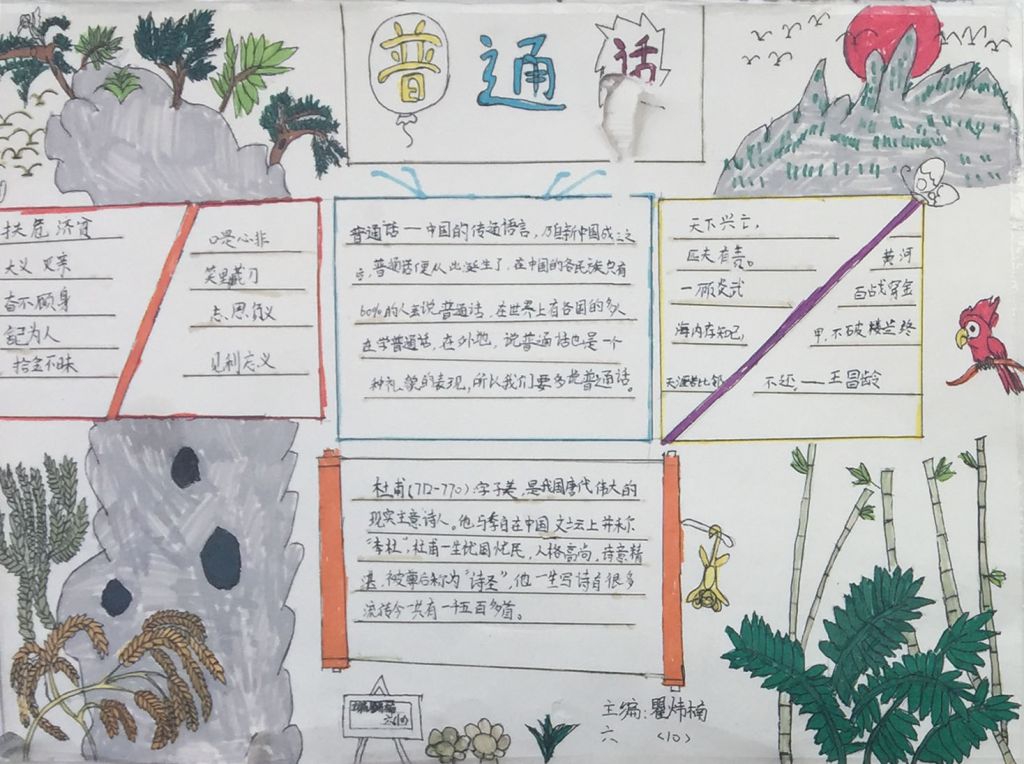 普通话
扶危济贫
大义灭亲
奋不顾身
記为人
拾金不昧
口是心非
笑里藏刀
忘恩负义
见利忘义
普通话——中国的传通语言,
普通话便从此诞生了,在中国的各民族只有
60%的人去说普通话,在世界上有各国的多人
在学普通话,在外地,说普通话也是一个
种礼貌的表现,所以我们要多说普通话。
天下兴亡,
匹夫有责。
海内存知己,
天涯若比邻
黄河
百战穿金
甲,不破楼兰终
不还,——王昌龄
杜甫(712-770):字子美,是我国唐代伟大的
现实主意诗人。他与李白在中国文坛上并称
"李杜",杜甫一生忧国忧民,人格高尚,诗意精
湛,被尊后称为"诗圣",他一生写诗有很多
流转今共有一千五百多首。
主编:瞿炜楠
六 〈10〉